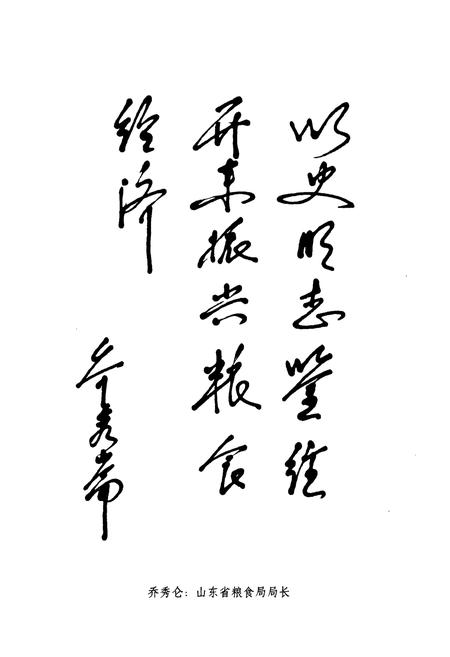 以史明志鉴往
开来振兴粮食
经济
乔秀仑
乔秀仑：山东省粮食局局长